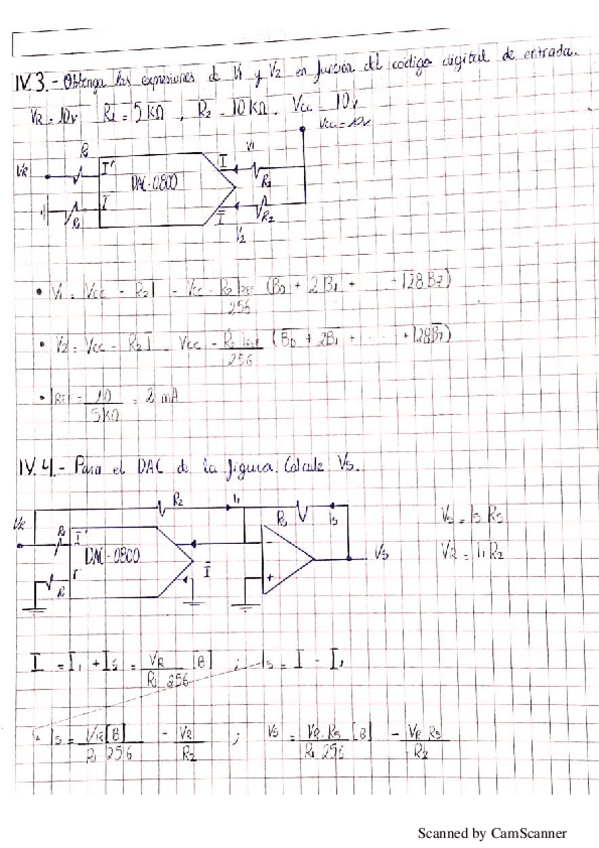 IV.3.- Obtenga las expresiones de V1 y V2 en función del código digital de entrada.
VR = 10v R1 = 5KΩ, R2 = 10KΩ. Vcc = 10v
Vcc = 10v
VR R1 I+ DAC-0800 I V1 R2
R1 I- I̅ R2
V2
• V1 = Vcc - R2 I = Vcc - R2 IREF/256 (B0 + 2B1 + ..... + 128B7)
• V2 = Vcc - R2 I̅ = Vcc - R2 IREF/256 (B̅0 + 2B̅1 + ..... + 128B̅7)
• IREF = 10/5KΩ = 2 mA
IV.4.- Para el DAC de la figura. Calcule Vs.
R2 I1 R3 Is Vs = Is R3
VR R1 I+ DAC-0800 - Vs VR = I1 R2
R1 I- I̅ +
I = I1 + Is = VR/R1 256 [B] ; Is = I - I1
Is = VR [B]/R1 256 - VR/R2 ; Vs = VR R3/R1 256 [B] - VR R3/R2
Scanned by CamScanner